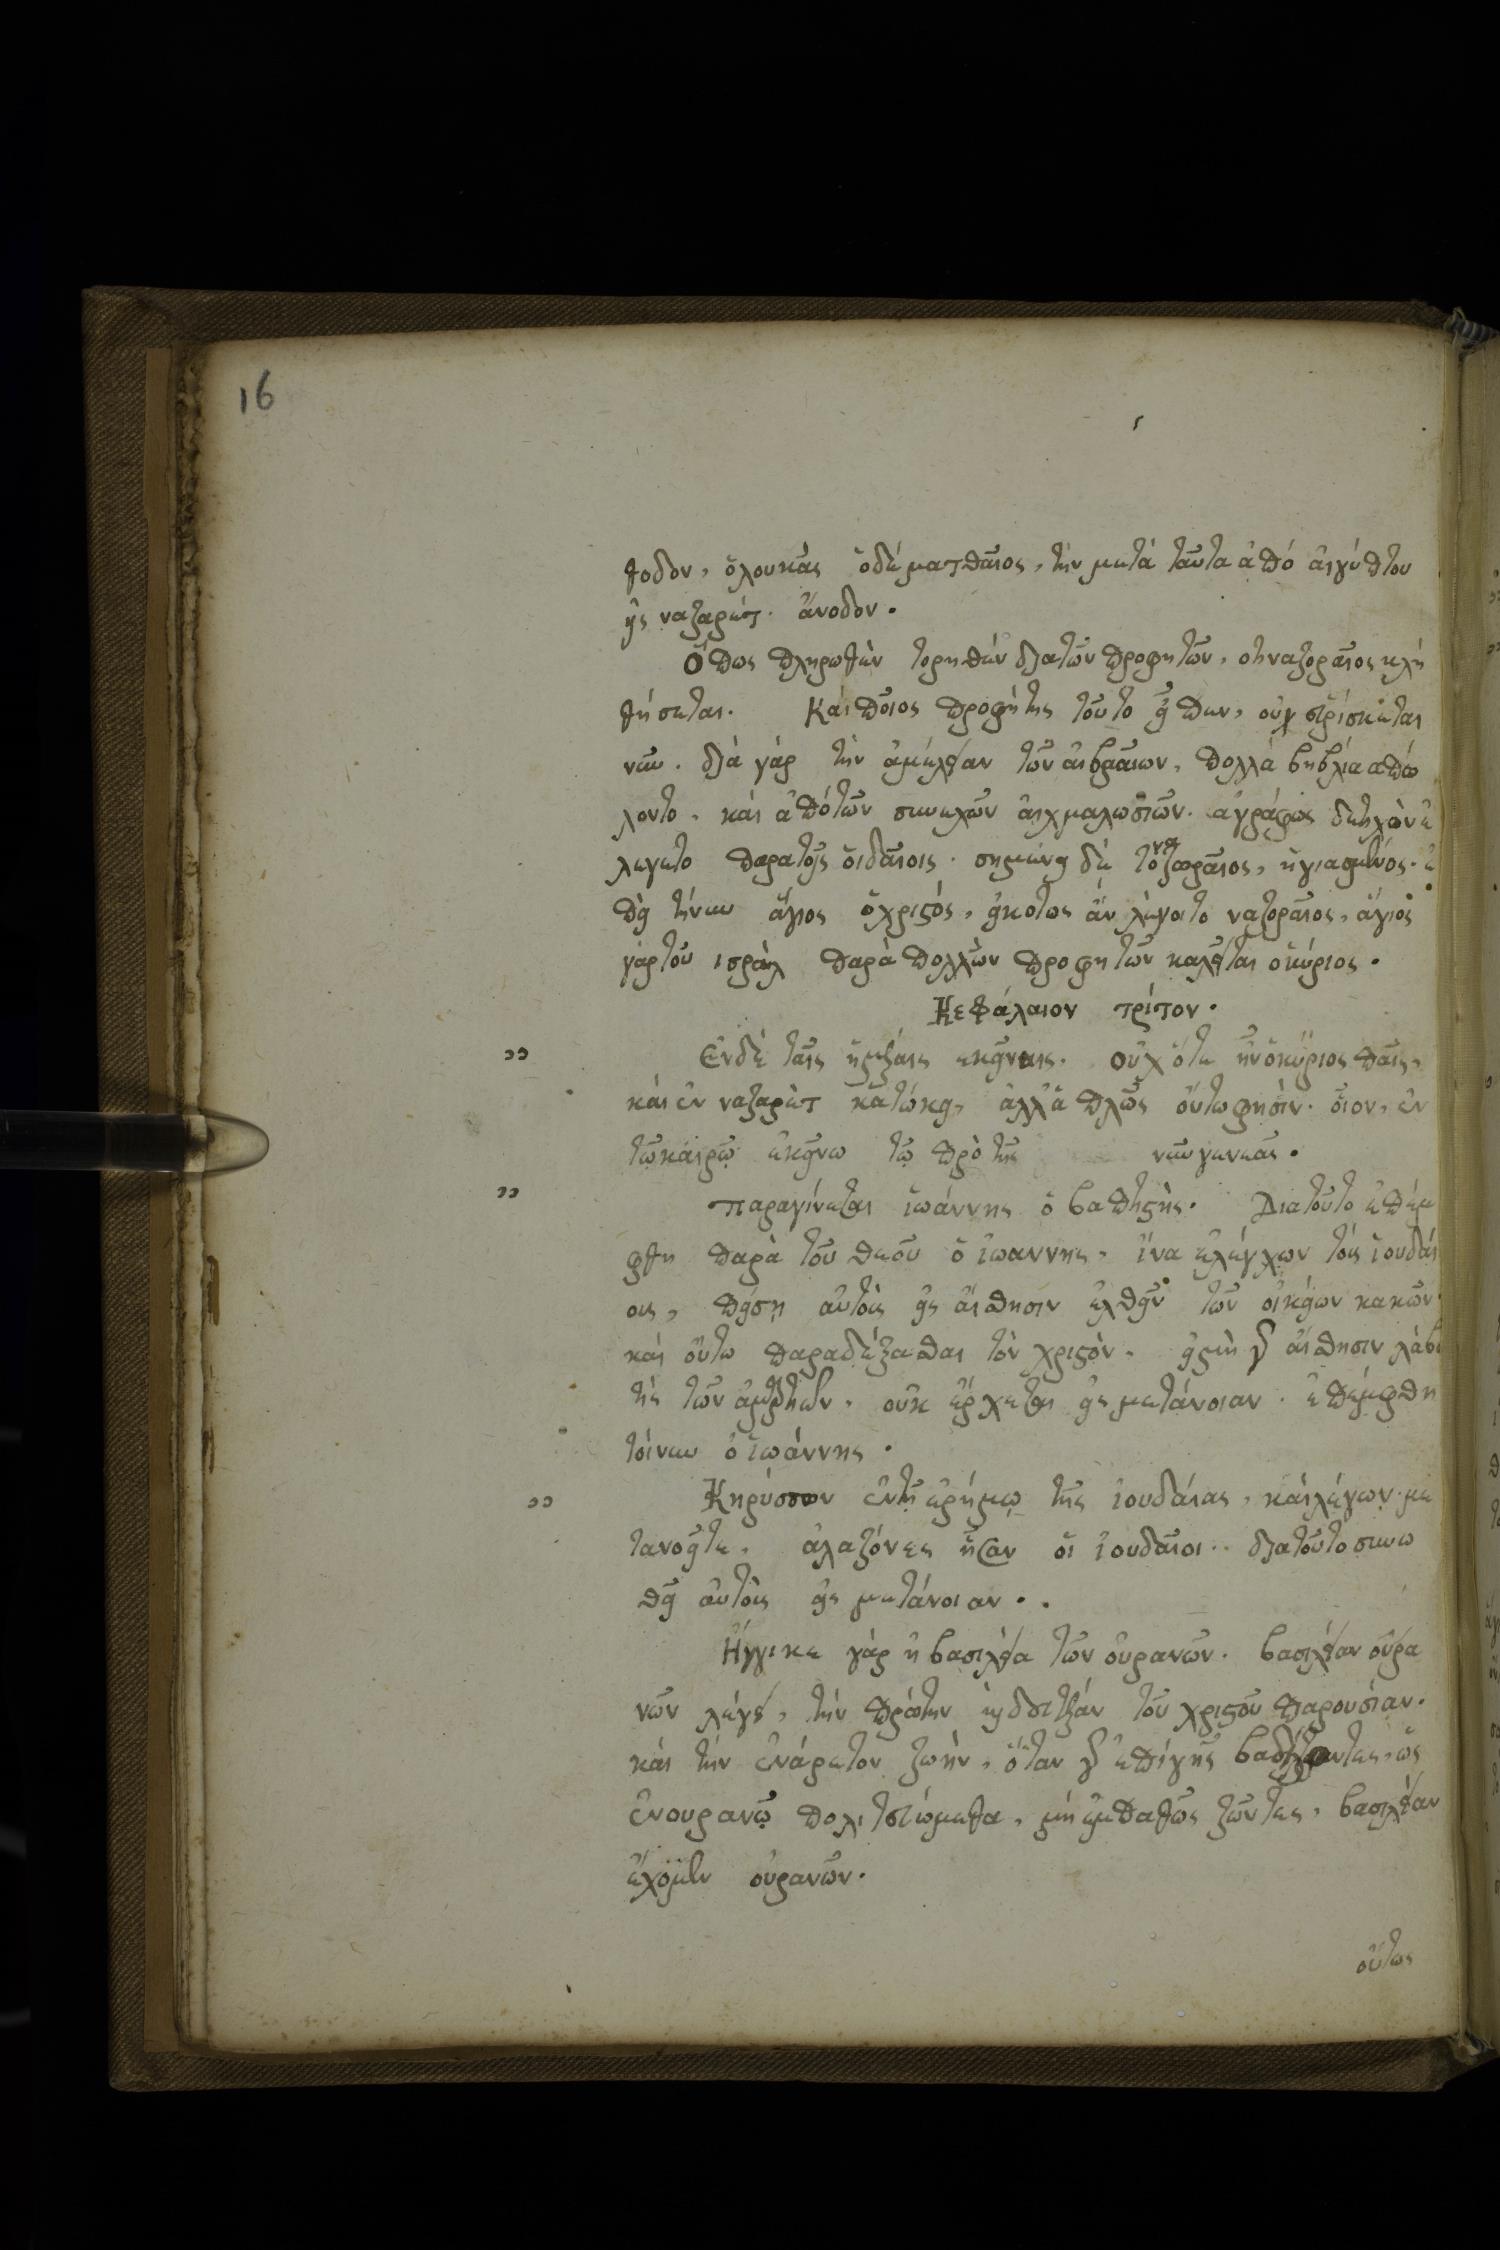 16
θοδον, ὁ λουκᾶς ὁ δὲ ματθαῖος, τὴν μετὰ ταῦτα ἀπὸ αἰγύπτου
εἰς ναζαρὲτ ἄνοδον.
Ὅπως πληρωθῆ τὸ ῥηθὲν διὰ τῶν προφητῶν, ὅτι ναζοραῖος κλη
θήσεται. Καὶ ποῖος προφήτης τοῦτο εἶπεν, οὐχ εὑρίσκεται
νῦν. διὰ γὰρ τὴν ἀμέλειαν τῶν αἰβραίων, πολλὰ βηβλία ἀπώ
λοντο. καὶ ἀπὸ τῶν συνεχῶν αἰχμαλωσιῶν. ἀγράφως δὲ ἐ
λέγετο παρὰ τοῖς ἰουδαίοις. σημαίνει δὲ τὸ ναζωραῖος, ἡγιασμένος. ἐ
πεὶ τοίνυν ἅγιος ὁ χριστός, εἰκότως ἂν λέγοιτο ναζοραῖος, ἅγιος
γὰρ τοῦ ισραὴλ παρὰ πολλῶν προφητῶν καλεῖται ὁ κύριος.
Κεφάλαιον τρίτον.
Ἐν δὲ ταῖς ἡμέραις ἐκείναις. οὐχ ὅτε ἦν ὁ κύριος παῖς,
καὶ ἐν ναζαρὲτ κατώκει, ἀλλ' ἁπλῶς οὕτω φησίν. οἷον, ἐν
τῷ καιρῷ ἐκείνω τῷ πρὸ τῆς νῦν γενεᾶς.
παραγίνεται ἰωάννης ὁ βαπτιστής. Διατοῦτο ἐπέμ
φθη παρὰ τοῦ θεοῦ ὁ ἰωαννης, ἵνα ἐλέγχων τοὺς ἰουδαί
ους, πείση αὐτοὺς εἰς αἴσθησιν ἐλθεῖν τῶν οἰκείων κακῶν
καὶ οὕτω παραδέξασθαι τὸν χριστόν. εἰ μὴ γὰρ αἴσθησιν λάβῃ
τὶς τῶν ἁμαρτιῶν, οὐκ ἔρχεται εἰς μετάνοιαν. ἐπέμφθη
τοίνυν ὁ ἰωάννης.
Κηρύσσων ἐν τῇ ἐρήμῳ τῆς ἰουδαίας, καὶ λέγων. με
τανοεῖτε. ἀλαζόνες ἦσαν οἱ ἰουδαῖοι. διατοῦτο συνω
θεῖ αὐτοὺς εἰς μετάνοιαν.
Ἤγγικε γὰρ ἡ βασιλεία τῶν οὐρανῶν. βασιλείαν οὐρα
νῶν λέγει, τὴν πρώτην καὶ δευτέραν τοῦ χριστοῦ παρουσίαν.
καὶ τὴν ἐνάρετον ζωήν, ὅταν γὰρ ἐπὶ γῆς βαδίζοντες, ὡς
ἐν ουρανῷ πολιτευώμεθα, μὴ ἐμπαθῶς ζῶντες, βασιλείαν
ἔχομεν οὐρανῶν.
οὕτως